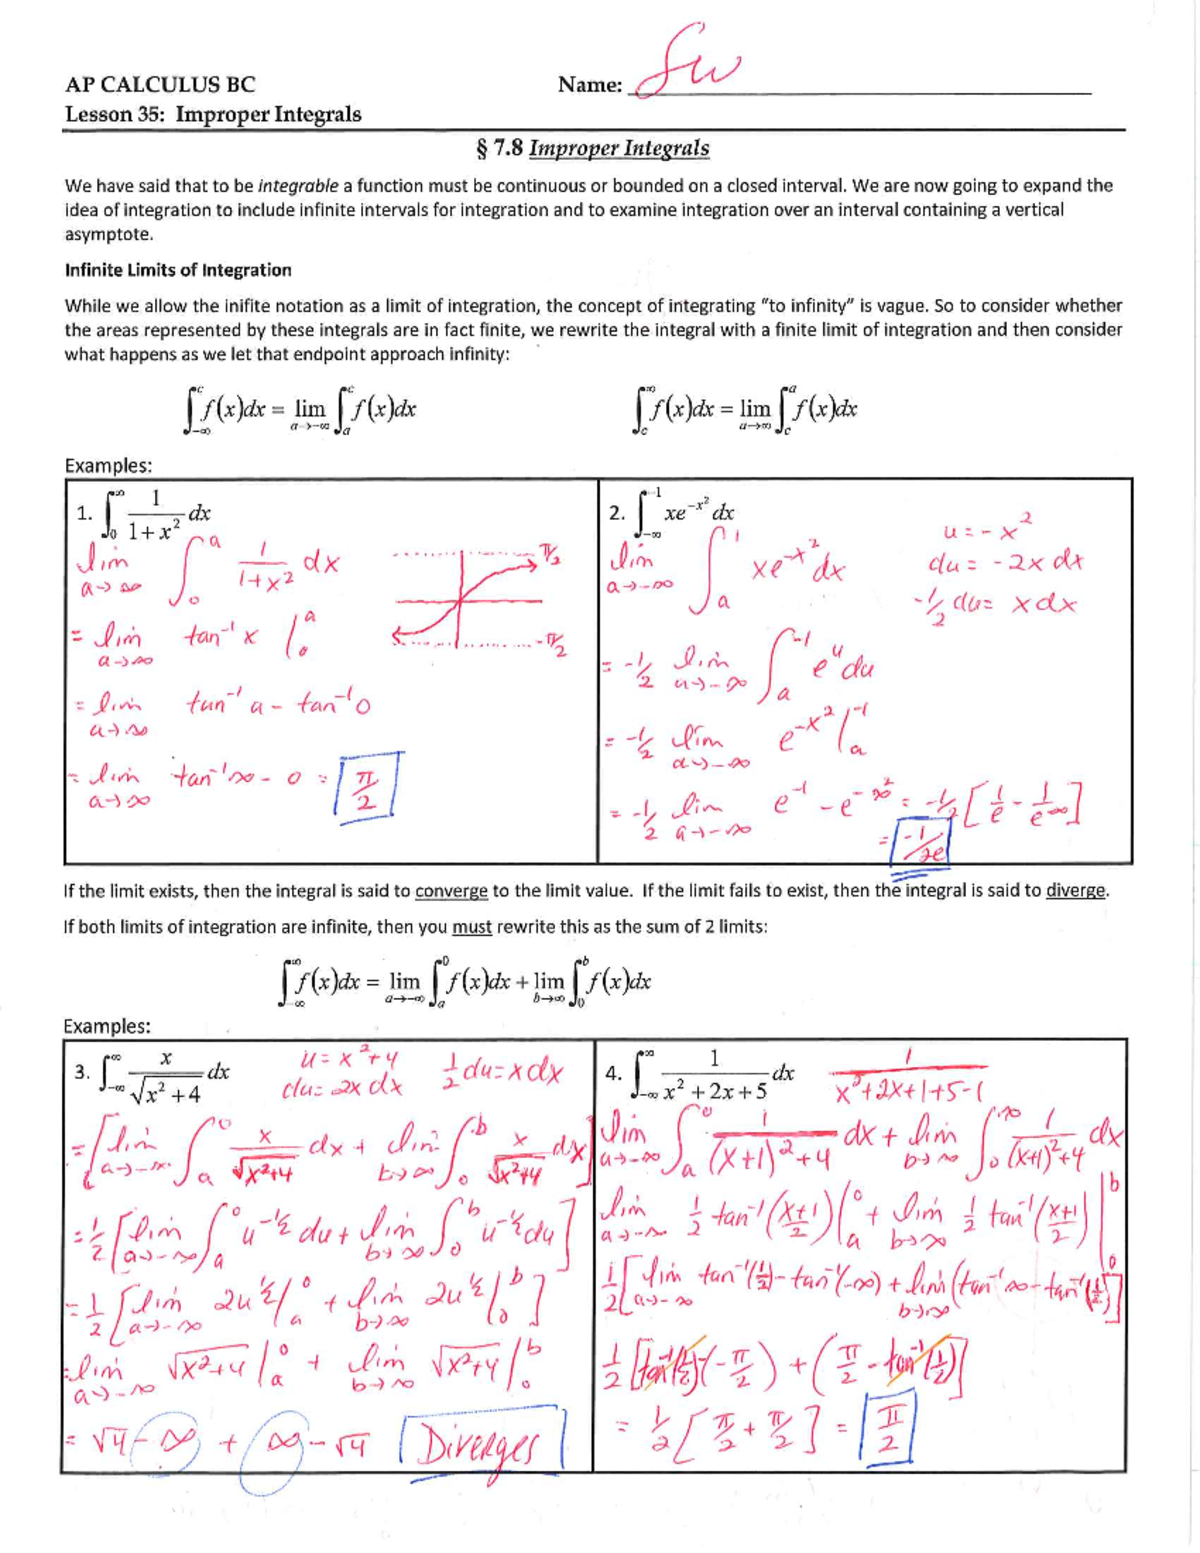 AP CALCULUS BC Name: SW
Lesson 35: Improper Integrals
§ 7.8 Improper Integrals
We have said that to be integrable a function must be continuous or bounded on a closed interval. We are now going to expand the
idea of integration to include infinite intervals for integration and to examine integration over an interval containing a vertical
asymptote.
Infinite Limits of Integration
While we allow the inifite notation as a limit of integration, the concept of integrating "to infinity" is vague. So to consider whether
the areas represented by these integrals are in fact finite, we rewrite the integral with a finite limit of integration and then consider
what happens as we let that endpoint approach infinity:
∫_{-∞}^{c} f(x)dx = lim_{a→-∞} ∫_{a}^{c} f(x)dx ∫_{c}^{∞} f(x)dx = lim_{a→∞} ∫_{c}^{a} f(x)dx
Examples:
1. ∫_{0}^{∞} 1/(1+x²) dx
lim_{a→∞} ∫_{0}^{a} 1/(1+x²) dx
π/2
-π/2
= lim_{a→∞} tan⁻¹ x |_{0}^{a}
= lim_{a→∞} tan⁻¹ a - tan⁻¹ 0
= lim_{a→∞} tan⁻¹ ∞ - 0 = π/2
2. ∫_{-∞}^{-1} xe^{-x²} dx
u = -x²
du = -2x dx
-1/2 du = x dx
lim_{a→-∞} ∫_{a}^{-1} xe^{-x²} dx
= -1/2 lim_{a→-∞} ∫_{a}^{-1} e^u du
= -1/2 lim_{a→-∞} e^{-x²} |_{a}^{-1}
= -1/2 lim_{a→-∞} e^{-1} - e^{-∞²} = -1/2 [1/e - 1/e^∞]
= -1/2e
If the limit exists, then the integral is said to converge to the limit value. If the limit fails to exist, then the integral is said to diverge.
If both limits of integration are infinite, then you must rewrite this as the sum of 2 limits:
∫_{-∞}^{∞} f(x)dx = lim_{a→-∞} ∫_{a}^{0} f(x)dx + lim_{b→∞} ∫_{0}^{b} f(x)dx
Examples:
3. ∫_{-∞}^{∞} x/√(x²+4) dx
u = x²+4 1/2 du = x dx
du = 2x dx
= [lim_{a→-∞} ∫_{a}^{0} x/√(x²+4) dx + lim_{b→∞} ∫_{0}^{b} x/√(x²+4) dx]
= 1/2 [lim_{a→-∞} ∫_{a}^{0} u^{-1/2} du + lim_{b→∞} ∫_{0}^{b} u^{-1/2} du]
= 1/2 [lim_{a→-∞} 2u^{1/2} |_{a}^{0} + lim_{b→∞} 2u^{1/2} |_{0}^{b}]
= lim_{a→-∞} √(x²+4) |_{a}^{0} + lim_{b→∞} √(x²+4) |_{0}^{b}
= √4 - ∞ + ∞ - √4 Diverges
4. ∫_{-∞}^{∞} 1/(x²+2x+5) dx 1/(x²+2x+1+5-1)
lim_{a→-∞} ∫_{a}^{0} 1/((x+1)²+4) dx + lim_{b→∞} ∫_{0}^{∞} 1/((x+1)²+4) dx
lim_{a→-∞} 1/2 tan⁻¹((x+1)/2) |_{a}^{0} + lim_{b→∞} 1/2 tan⁻¹((x+1)/2) |_{0}^{b}
1/2 [lim_{a→-∞} tan⁻¹(1/2) - tan⁻¹(-∞) + lim_{b→∞} (tan⁻¹ ∞ - tan⁻¹(1/2))]
1/2 [tan⁻¹(1/2) - (-π/2) + (π/2 - tan⁻¹(1/2))]
= 1/2 [π/2 + π/2] = π/2